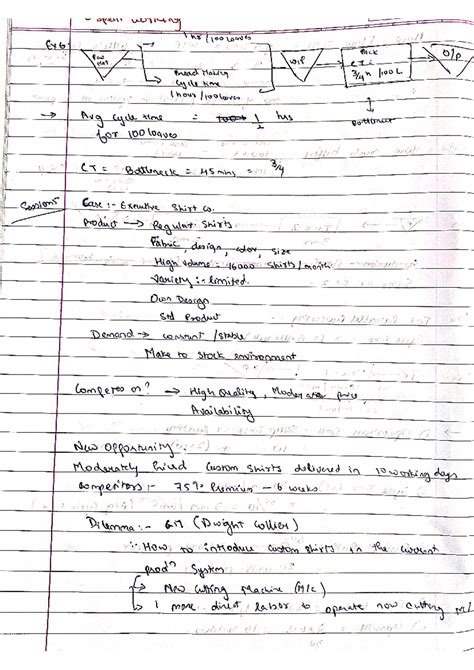 1 hr / 100 loaves
Ex 6:
Raw Mat
Bread Making
Cycle time
1 hour / 100 loaves
WIP
Pack
CT:
3/4 h / 100 L
O/P
Bottleneck
→ Avg cycle time = 1/2 hrs
for 100 loaves
CT = Bottleneck = 45 mins = 3/4
Session 5
Case :- Executive Shirt Co.
Product → Regular Shirts
Fabric, design, color, size
High volume : 16000 shirts/month
Variety :- limited.
Own Design
Std Product
Demand → constant / stable
Make to stock environment
Competes on? → High Quality, Moderate price,
Availability
New Opportunity
Moderately Priced custom shirts delivered in 10 working days
Competitors :- 75% Premium - 6 weeks
Dilemma :- GM (Dwight Collier)
∵ How to introduce custom shirts in the current
prodn System
→ New Cutting Machine (M/C)
→ 1 more direct labor to operate new cutting M/